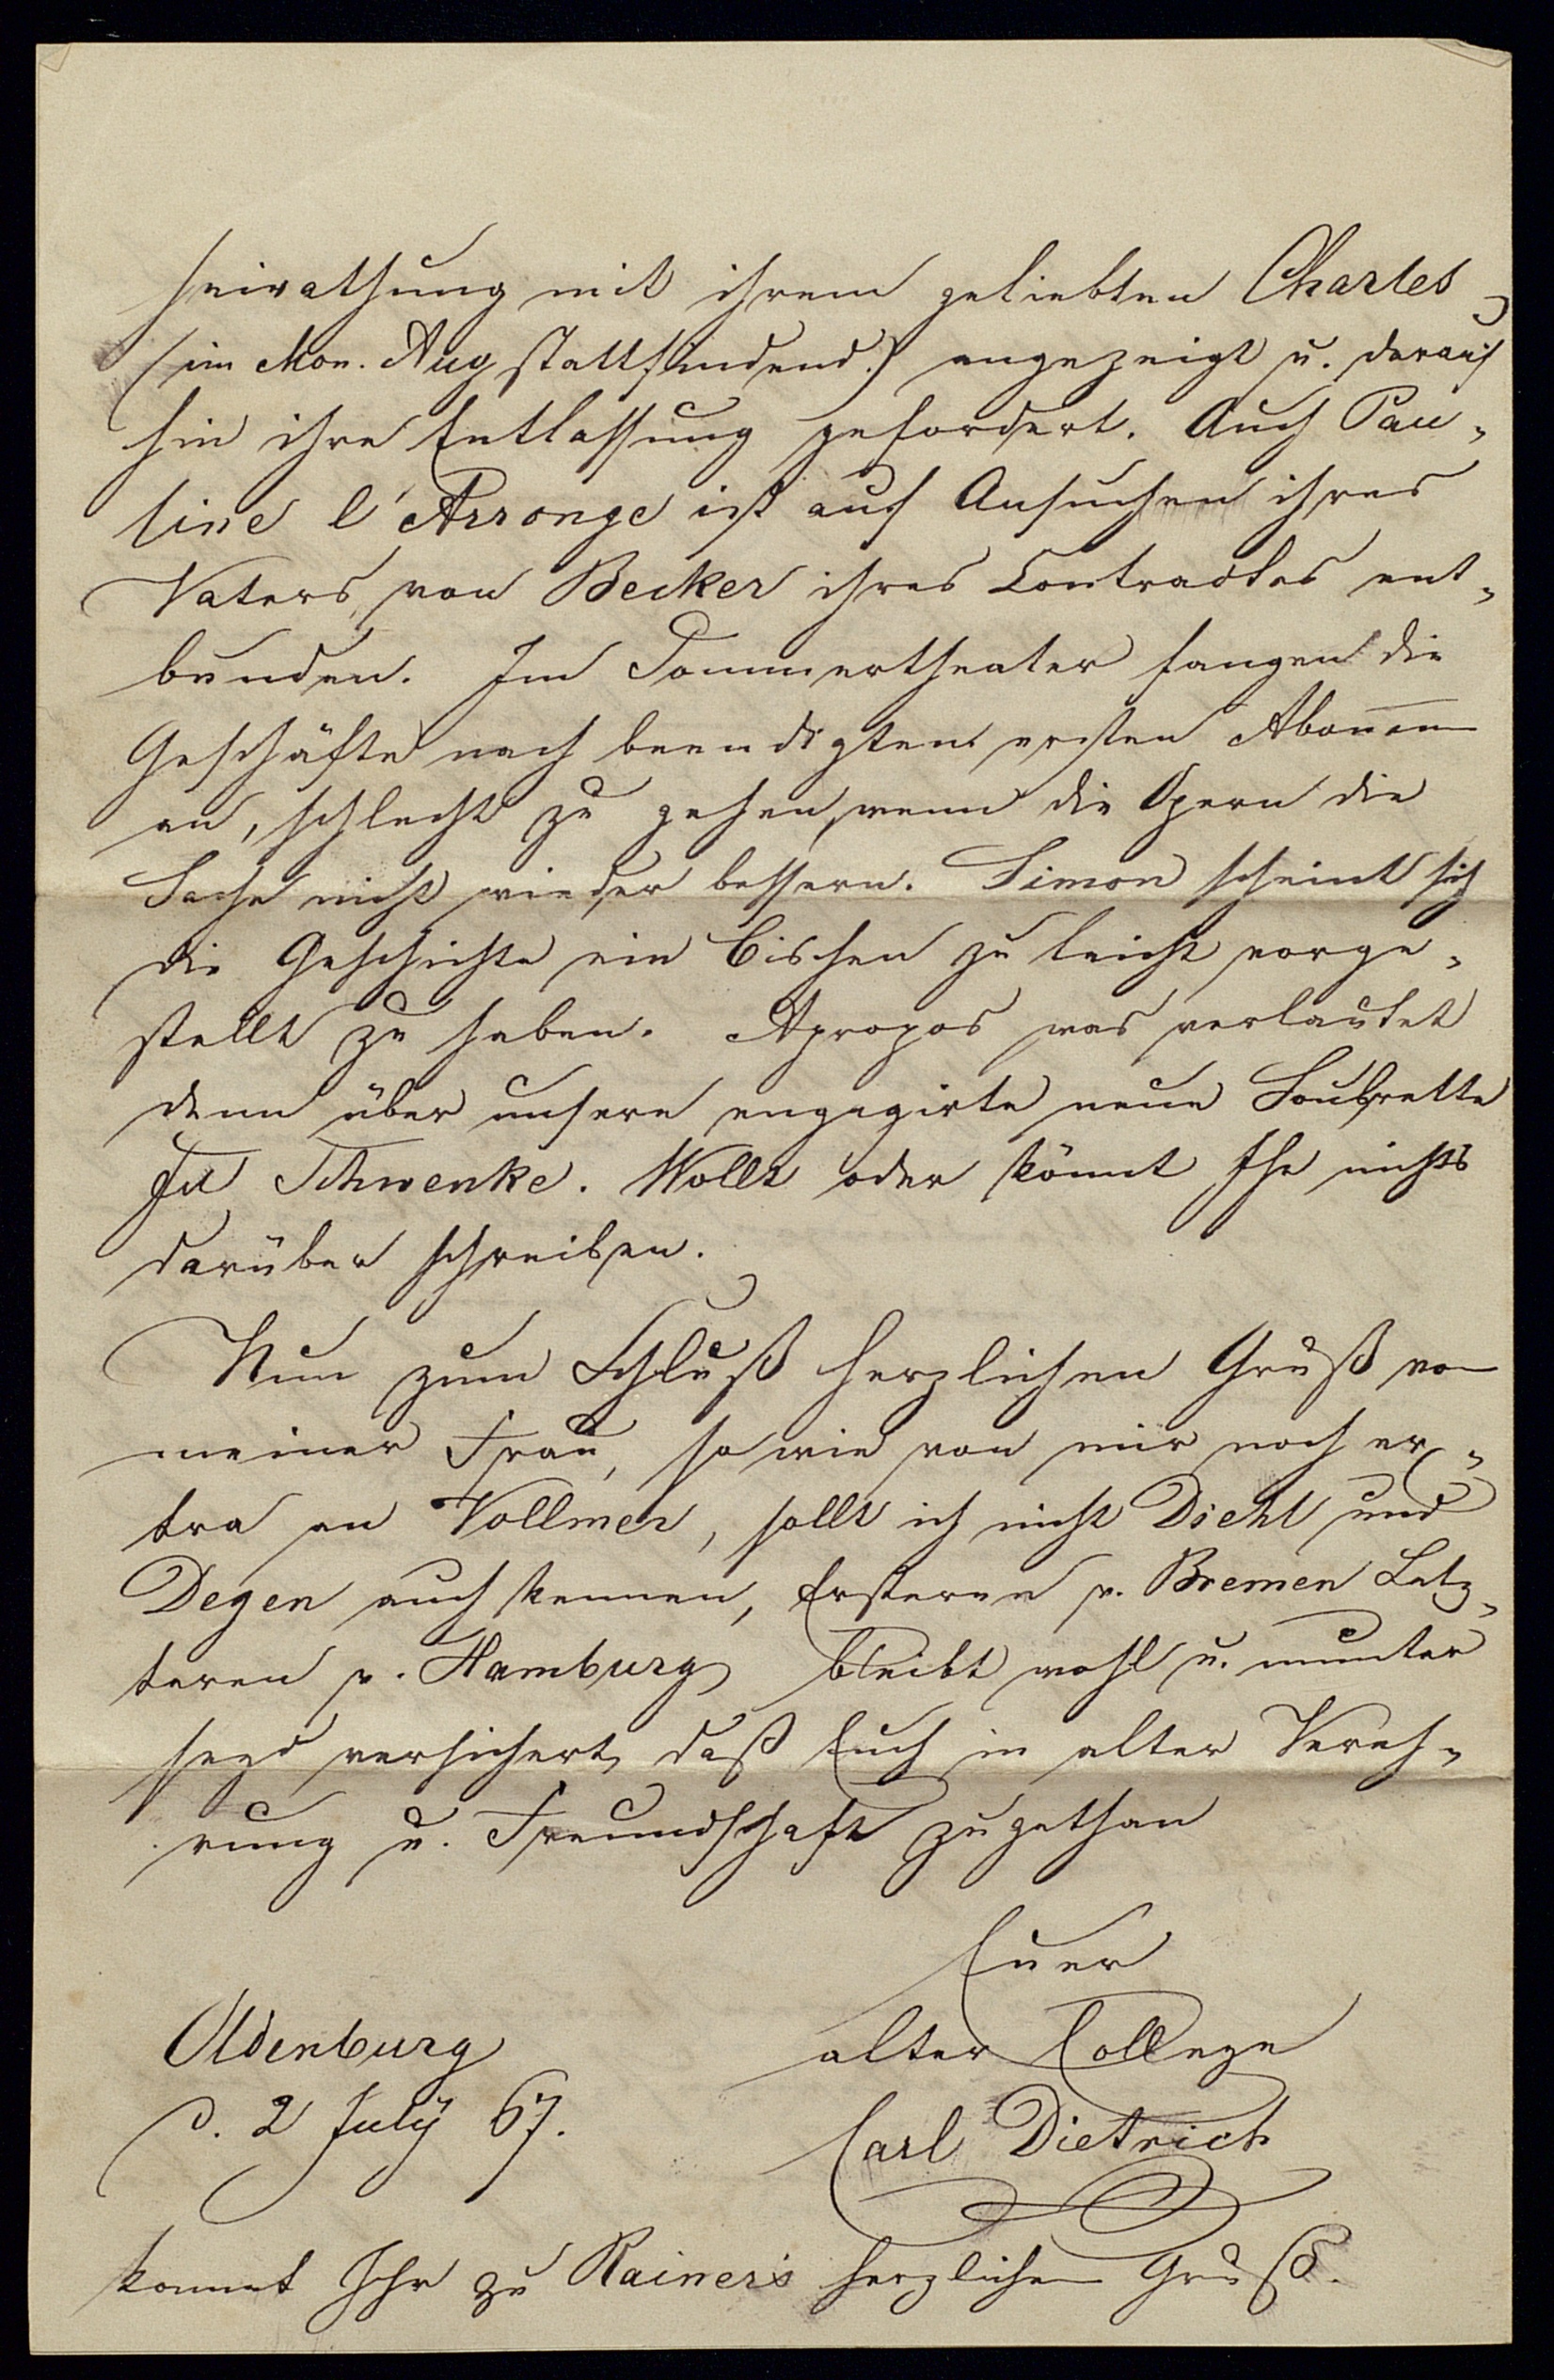 heirathung mit ihrem geliebten Charles
(im Mon. Aug stattfindend.) angezeigt u. darauf
hin ihre Entlassung gefordert. Auch Pau-
line l'Arronge ist auf Ansuchen ihres
Vaters von Becker ihres Contractes ent-
bunden. Im Sommertheater fangen die
Geschäfte nach beendigten ersten Abonnem
an, schlecht zu gehen, wenn die Opern die
Sache nicht wieder bessern. Simon scheint sich
die Geschichte ein Bischen zu leicht vorge-
stellt zu haben. Apropos was verlautet
denn über unsere engagirte neue Soubrette
Frl Schwenke. Wollt oder könnt Ihr nichts
darüber schreiben.
Nun zum Schluß herzlichen Gruß von
meiner Frau, so wie von mir noch ex-
tra an Vollmer, sollt ich nicht Diehl und
Degen auch kennen, Ersteren v. Bremen Letz-
teren v. Hamburg bleibt wohl u. munter
seyd versichert, daß Euch in alter Vereh-
rung u. Freundschaft zugethan
Euer
alter College
Carl Dietrich
Oldenburg
d. 2 July 67.
kommt Ihr zu Rainer's herzlichen Gruß.